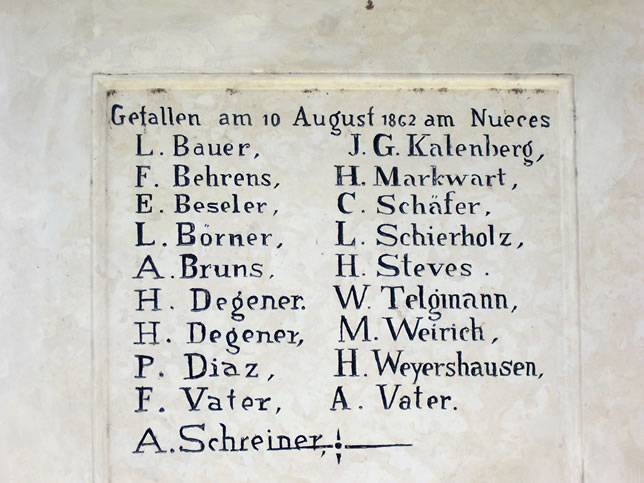 Gefallen am 10 August 1862 am Nueces
L. Bauer, J. G. Kalenberg,
F. Behrens, H. Markwart,
E. Beseler, C. Schäfer,
L. Börner, L. Schierholz,
A. Bruns, H. Steves.
H. Degener. W. Telgmann,
H. Degener, M. Weirich,
P. Diaz, H. Weyershausen,
F. Vater, A. Vater.
A. Schreiner,